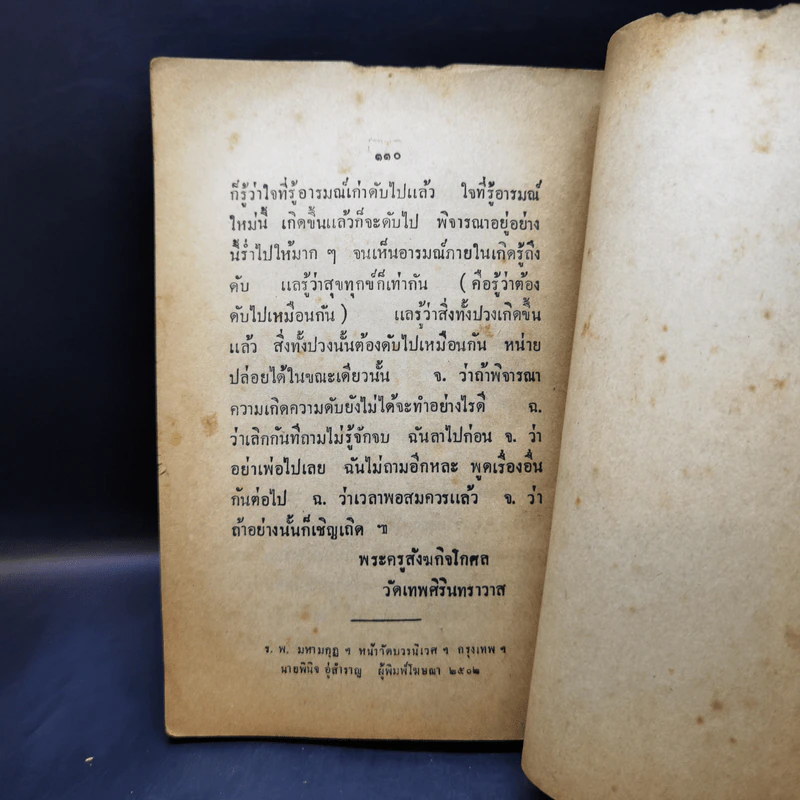 ๑๑๐
ก็รู้ว่าใจที่รู้อารมณ์เก่าดับไปแล้ว ใจที่รู้อารมณ์
ใหม่นี้ เกิดขึ้นแล้วก็จะดับไป พิจารณาอยู่อย่าง
นี้ร่ำไปให้มาก ๆ จนเห็นอารมณ์ภายในเกิดรู้ถึง
ดับ แลรู้ว่าสุขทุกข์ก็เท่ากัน (คือรู้ว่าต้อง
ดับไปเหมือนกัน) แลรู้ว่าสิ่งทั้งปวงเกิดขึ้น
แล้ว สิ่งทั้งปวงนั้นต้องดับไปเหมือนกัน หน่าย
ปล่อยได้ในขณะเดียวนั้น จ. ว่าถ้าพิจารณา
ความเกิดความดับยังไม่ได้จะทำอย่างไรดี ฉ.
ว่าเลิกกันทีถามไม่รู้จักจบ ฉันลาไปก่อน จ. ว่า
อย่าเพ่อไปเลย ฉันไม่ถามอีกหละ พูดเรื่องอื่น
กันต่อไป ฉ. ว่าเวลาพอสมควรแล้ว จ. ว่า
ถ้าอย่างนั้นก็เชิญเถิด ฯ
พระครูสังฆกิจโกศล
วัดเทพศิรินทราวาส
ร. พ. มหามกุฏ ฯ หน้าวัดบวรนิเวศ ฯ กรุงเทพ ฯ
นายพินิจ อู่สำราญ ผู้พิมพ์โฆษณา ๒๕๐๒